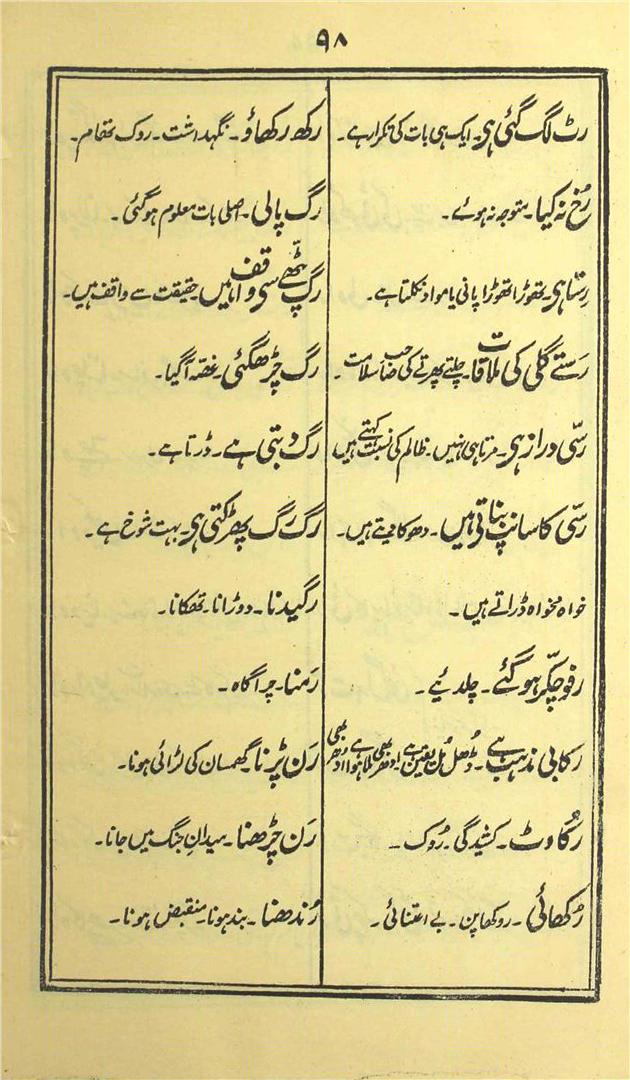 ۹۸
رٹ لگ گئی ہی۔ ایک ہی بات کی تکرار ہے۔
رُخ نہ کیا۔ متوجہ نہ ہوئے۔
رِستا ہی۔ تھوڑا تھوڑا پانی یا مواد نکلتا ہے۔
رستے گلی کی ملاقات۔ چلتے پھرتے کی صاحب سلامت۔
رسّی دراز ہی۔ مرتا ہی نہیں۔ ظالم کی نسبت کہتے ہیں
رسّی کا سانپ بناتی ہیں۔ دھوکا دیتے ہیں۔
خواہ مخواہ ڈراتے ہیں۔
رفو چکّر ہو گئے۔ چلدئیے۔
رکابی مذہب ہے۔ ڈھل مل یقین ہے۔ اِدھر بھی ملا ہوا اُدھر بھی
رُکاوٹ۔ کشیدگی۔ رُوک۔
رُکھائی۔ روکھا پن۔ بے اعتنائی۔
رکھ رکھاؤ۔ نگہداشت۔ روک تھام۔
رگ پالی۔ اصلی بات معلوم ہو گئی۔
رگ پٹھے سی واقف ہیں۔ حقیقت سے واقف ہیں۔
رگ چڑھ گئی۔ غصہ آگیا۔
رگ دبتی ہے۔ ڈرتا ہے۔
رگ رگ پھڑکتی ہی۔ بہت شوخ ہے۔
رگیدنا۔ دوڑانا۔ تھکانا۔
رَمنا۔ چراگاہ۔
رَن پڑنا۔ گھمسان کی لڑائی ہونا۔
رَن چڑھنا۔ میدانِ جنگ میں جانا۔
رُندھنا۔ بند ہونا۔ منقبض ہونا۔